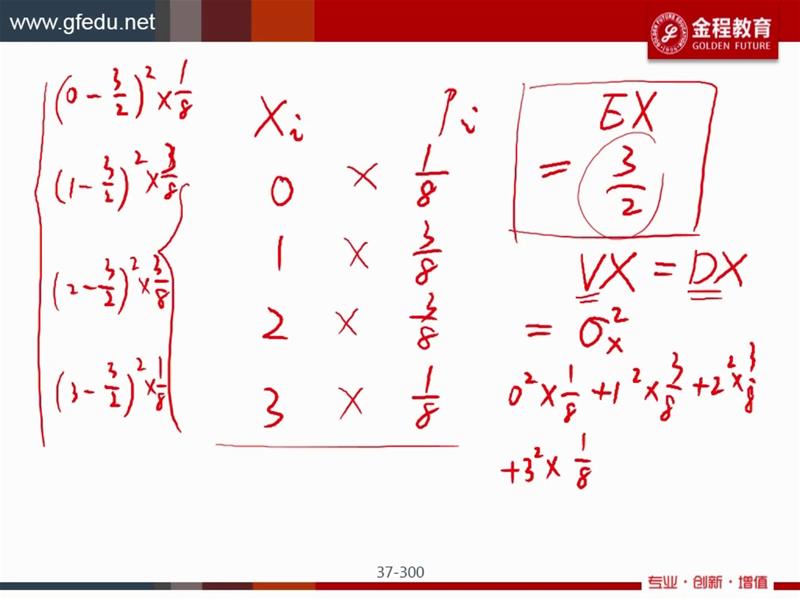 www.gfedu.net
金程教育
GOLDEN FUTURE
(0 - 3/2)² × 1/8
(1 - 3/2)² × 3/8
(2 - 3/2)² × 3/8
(3 - 3/2)² × 1/8
Xi Pi
0 × 1/8
1 × 3/8
2 × 3/8
3 × 1/8
EX
= 3/2
VX = DX
= σx²
0² × 1/8 + 1² × 3/8 + 2² × 3/8
+ 3² × 1/8
37-300
专业·创新·增值